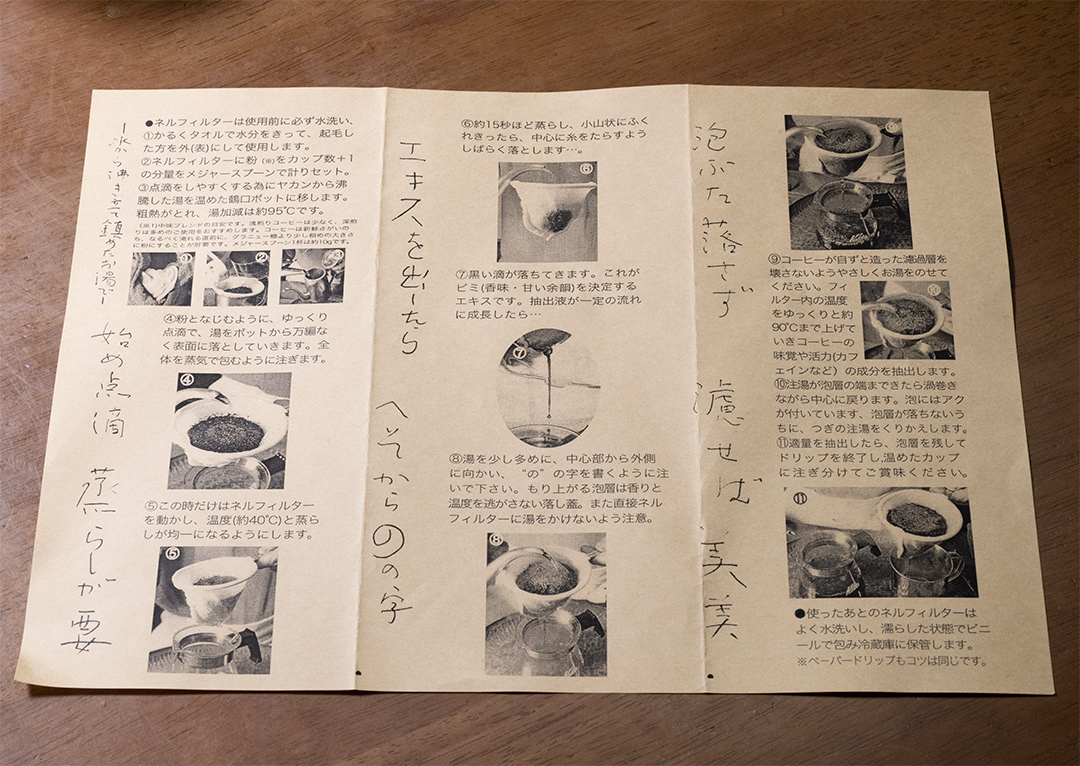 水から沸き立て鎮めたお湯で
始め点滴 蒸らしが要
●ネルフィルターは使用前に必ず水洗い、
①かるくタオルで水分をきって、起毛し
た方を外(表)にして使用します。
②ネルフィルターに粉(※)をカップ数+1
の分量をメジャースプーンで計りセット。
③点滴をしやすくする為にヤカンから沸
騰した湯を温めた鶴口ポットに移します。
粗熱がとれ、湯加減は約95℃です。
(※1)中味ブレンドの目安です。浅煎りコーヒーは少なく、深煎
りは多めのご使用をおすすめします。コーヒーは新鮮さがいの
ち、なるべく淹れる直前に、グラニュー糖より少し粗めの大きさ
に粉にすることが肝要です。メジャースプーン1杯は約10gです。
① ② ③
④粉となじむように、ゆっくり
点滴で、湯をポットから万編な
く表面に落としていきます。全
体を蒸気で包むように注ぎます。
④
⑤この時だけはネルフィルター
を動かし、温度(約40℃)と蒸ら
しが均一になるようにします。
⑤
エキスを出したら へそからのの字
⑥約15秒ほど蒸らし、小山状にふく
れきったら、中心に糸をたらすよう
しばらく落とします…。
⑥
⑦黒い滴が落ちてきます。これが
ビミ(香味・甘い余韻)を決定する
エキスです。抽出液が一定の流れ
に成長したら…
⑦
⑧湯を少し多めに、中心部から外側
に向かい、“の”の字を書くように注
いで下さい。もり上がる泡層は香りと
温度を逃がさない落し蓋。また直接ネル
フィルターに湯をかけないよう注意。
⑧
泡ぶた落さず 濾せば美美
⑨
⑨コーヒーが自ずと造った濾過層を
壊さないようやさしくお湯をのせて
ください。フィ
ルター内の温度
をゆっくりと約
90℃まで上げて
いきコーヒーの
味覚や活力(カフ
ェインなど)の成分を抽出します。
⑩
⑩注湯が泡層の端まできたら渦巻き
ながら中心に戻ります。泡にはアク
が付いています、泡層が落ちないう
ちに、つぎの注湯をくりかえします。
⑪適量を抽出したら、泡層を残して
ドリップを終了し,温めたカップ
に注ぎ分けてご賞味ください。
⑪
●使ったあとのネルフィルターは
よく水洗いし、濡らした状態でビニ
ールで包み冷蔵庫に保管します。
※ペーパードリップもコツは同じです。